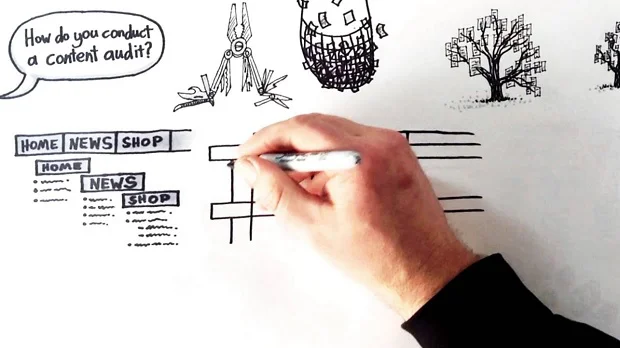 How do you conduct
a content audit?
HOME NEWS SHOP
HOME
NEWS
SHOP